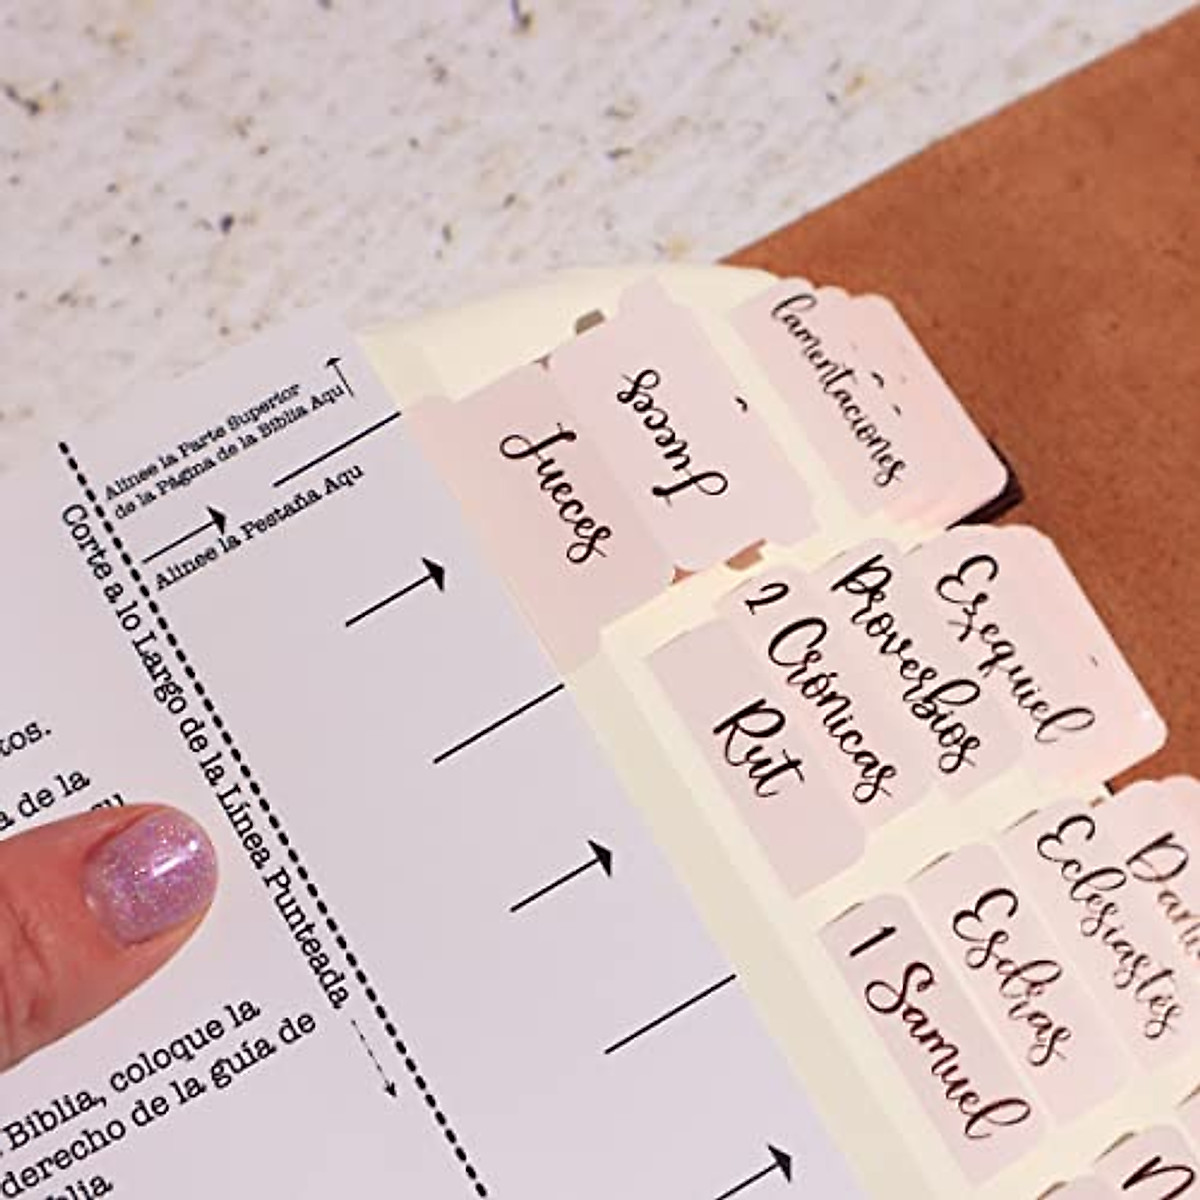 Alinee la Parte Superior
de la Página de la Biblia Aquí
Alinee la Pestaña Aqu
Corte a lo Largo de la Línea Punteada
tos.
a de la
Biblia, coloque la
derecho de la guía de
blia
Jueces
Jueces
lamentaciones
Rut
2 Crónicas
Proverbios
Ezequiel
1 Samuel
Esdras
Eclesiastés